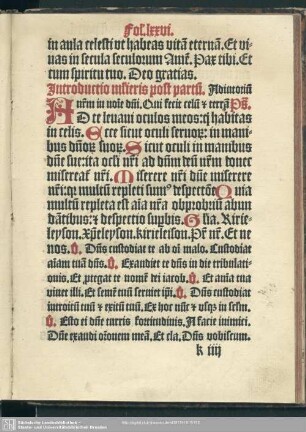 Fol.lxxvi.
in aula celesti vt habeas vitā eternā. Et vi-
uas in secula seculorum Amē. Pax tibi. Et
cum spiritu tuo. Deo gratias.
Introductio mlieris post partū. Adiutoriū
nr̄m in noīe dn̄i. Qui fecit celū ⁊ terrā. Ps̄.
AD te leuaui oculos meos: qͥ habitas
in celis. Ecce sicut oculi seruoꝝ: in mani-
bus dn̄oꝝ suoꝝ. Sicut oculi in manibus
dn̄e sue: ita ocli nr̄i ad dn̄m deū nr̄m donec
misereat᷑ nr̄i. Miserere nr̄i dn̄e miserere
nr̄i: qꝛ multū repleti sumꝰ despectōe. Quia
multū repleta est aīa nr̄a obprobriū abun
dātibus: ⁊ despectio supbis. Glīa. Kirie-
leyson. Xp̄eleyson. kirieleison. Pr̄ nr̄. Et ne
nos. ℣. Dn̄s custodiat te ab oī malo. Custodiat
aīam tuā dn̄s. ℣. Exaudiet te dn̄s in die tribulati-
onis. Et ꝓtegat te nomē dei iacob. ℣. Et aīa mea
viuet illi. Et semē meū seruiet ip̄i. ℣. Dn̄s custodiat
introitū tuū ⁊ exitū tuū. Ex hoc nūc ⁊ vsqꝫ in sclm̄.
℣. Esto ei dn̄e turris fortitudinis. A facie inimici.
Dn̄e exaudi or̄onem meā. Et cla. Dn̄s vobiscum.
k iiij